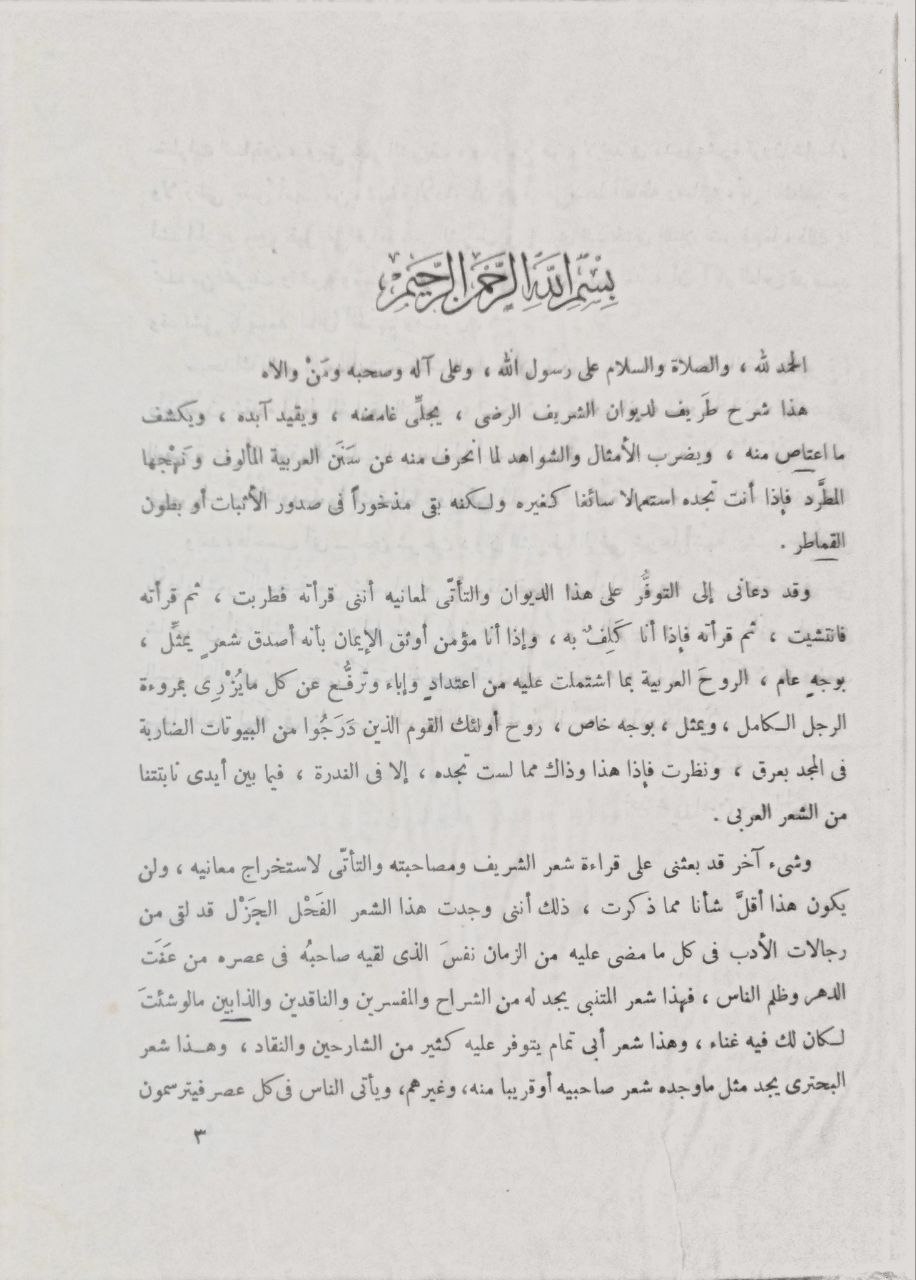 بِسْمِ اللَّهِ الرَّحْمَنِ الرَّحِيمِ
الحمد لله ، والصلاة والسلام على رسول الله ، وعلى آله وصحبه ومَنْ والاه
هذا شرح طَريف لديوان الشريف الرضى ، يجلّى غامضه ، ويقيد آبده ، ويكشف
ما اعتاص منه ، ويضرب الأمثال والشواهد لما انحرف منه عن سَنَن العربية المألوف ونَهْجها
المطَّرد فإذا أنت تجده استعمالا سائغا كغيره ولكنه بقى مذخوراً فى صدور الأثبات أو بطون
القماطر .
وقد دعانى إلى التوفُّر على هذا الديوان والتأتّى لمعانيه أننى قرأته فطربت ، ثم قرأته
فانتشيت ، ثم قرأته فإذا أنا كَلِفٌ به ، وإذا أنا مؤمن أوثق الإيمان بأنه أصدق شعرٍ يمثِّل ،
بوجهٍ عام ، الروحَ العربية بما اشتملت عليه من اعتدادٍ وإباء وترفُّع عن كل ما يُزْرِى بمروءة
الرجل الكامل ، ويمثل ، بوجه خاص ، روح أولئك القوم الذين دَرَجُوا من البيوتات الضاربة
فى المجد بعرق ، ونظرت فإذا هذا وذاك مما لست تجده ، إلا فى الندرة ، فيما بين أيدى نابتتنا
من الشعر العربى .
وشىء آخر قد بعثنى على قراءة شعر الشريف ومصاحبته والتأتّى لاستخراج معانيه ، ولن
يكون هذا أقلَّ شأنا مما ذكرت ، ذلك أننى وجدت هذا الشعر الفَحْل الجَزْل قد لقى من
رجالات الأدب فى كل ما مضى عليه من الزمان نفسَ الذى لقيه صاحبُه فى عصره من عَنَت
الدهر وظلم الناس ، فهذا شعر المتنبى يجد له من الشراح والمفسرين والناقدين والذابين ما لو شئتَ
لكان لك فيه غناء ، وهذا شعر أبى تمام يتوفر عليه كثير من الشارحين والنقاد ، وهذا شعر
البحترى يجد مثل ما وجده شعر صاحبيه أو قريبا منه، وغيرهم، ويأتى الناس فى كل عصر فيترسمون
٣